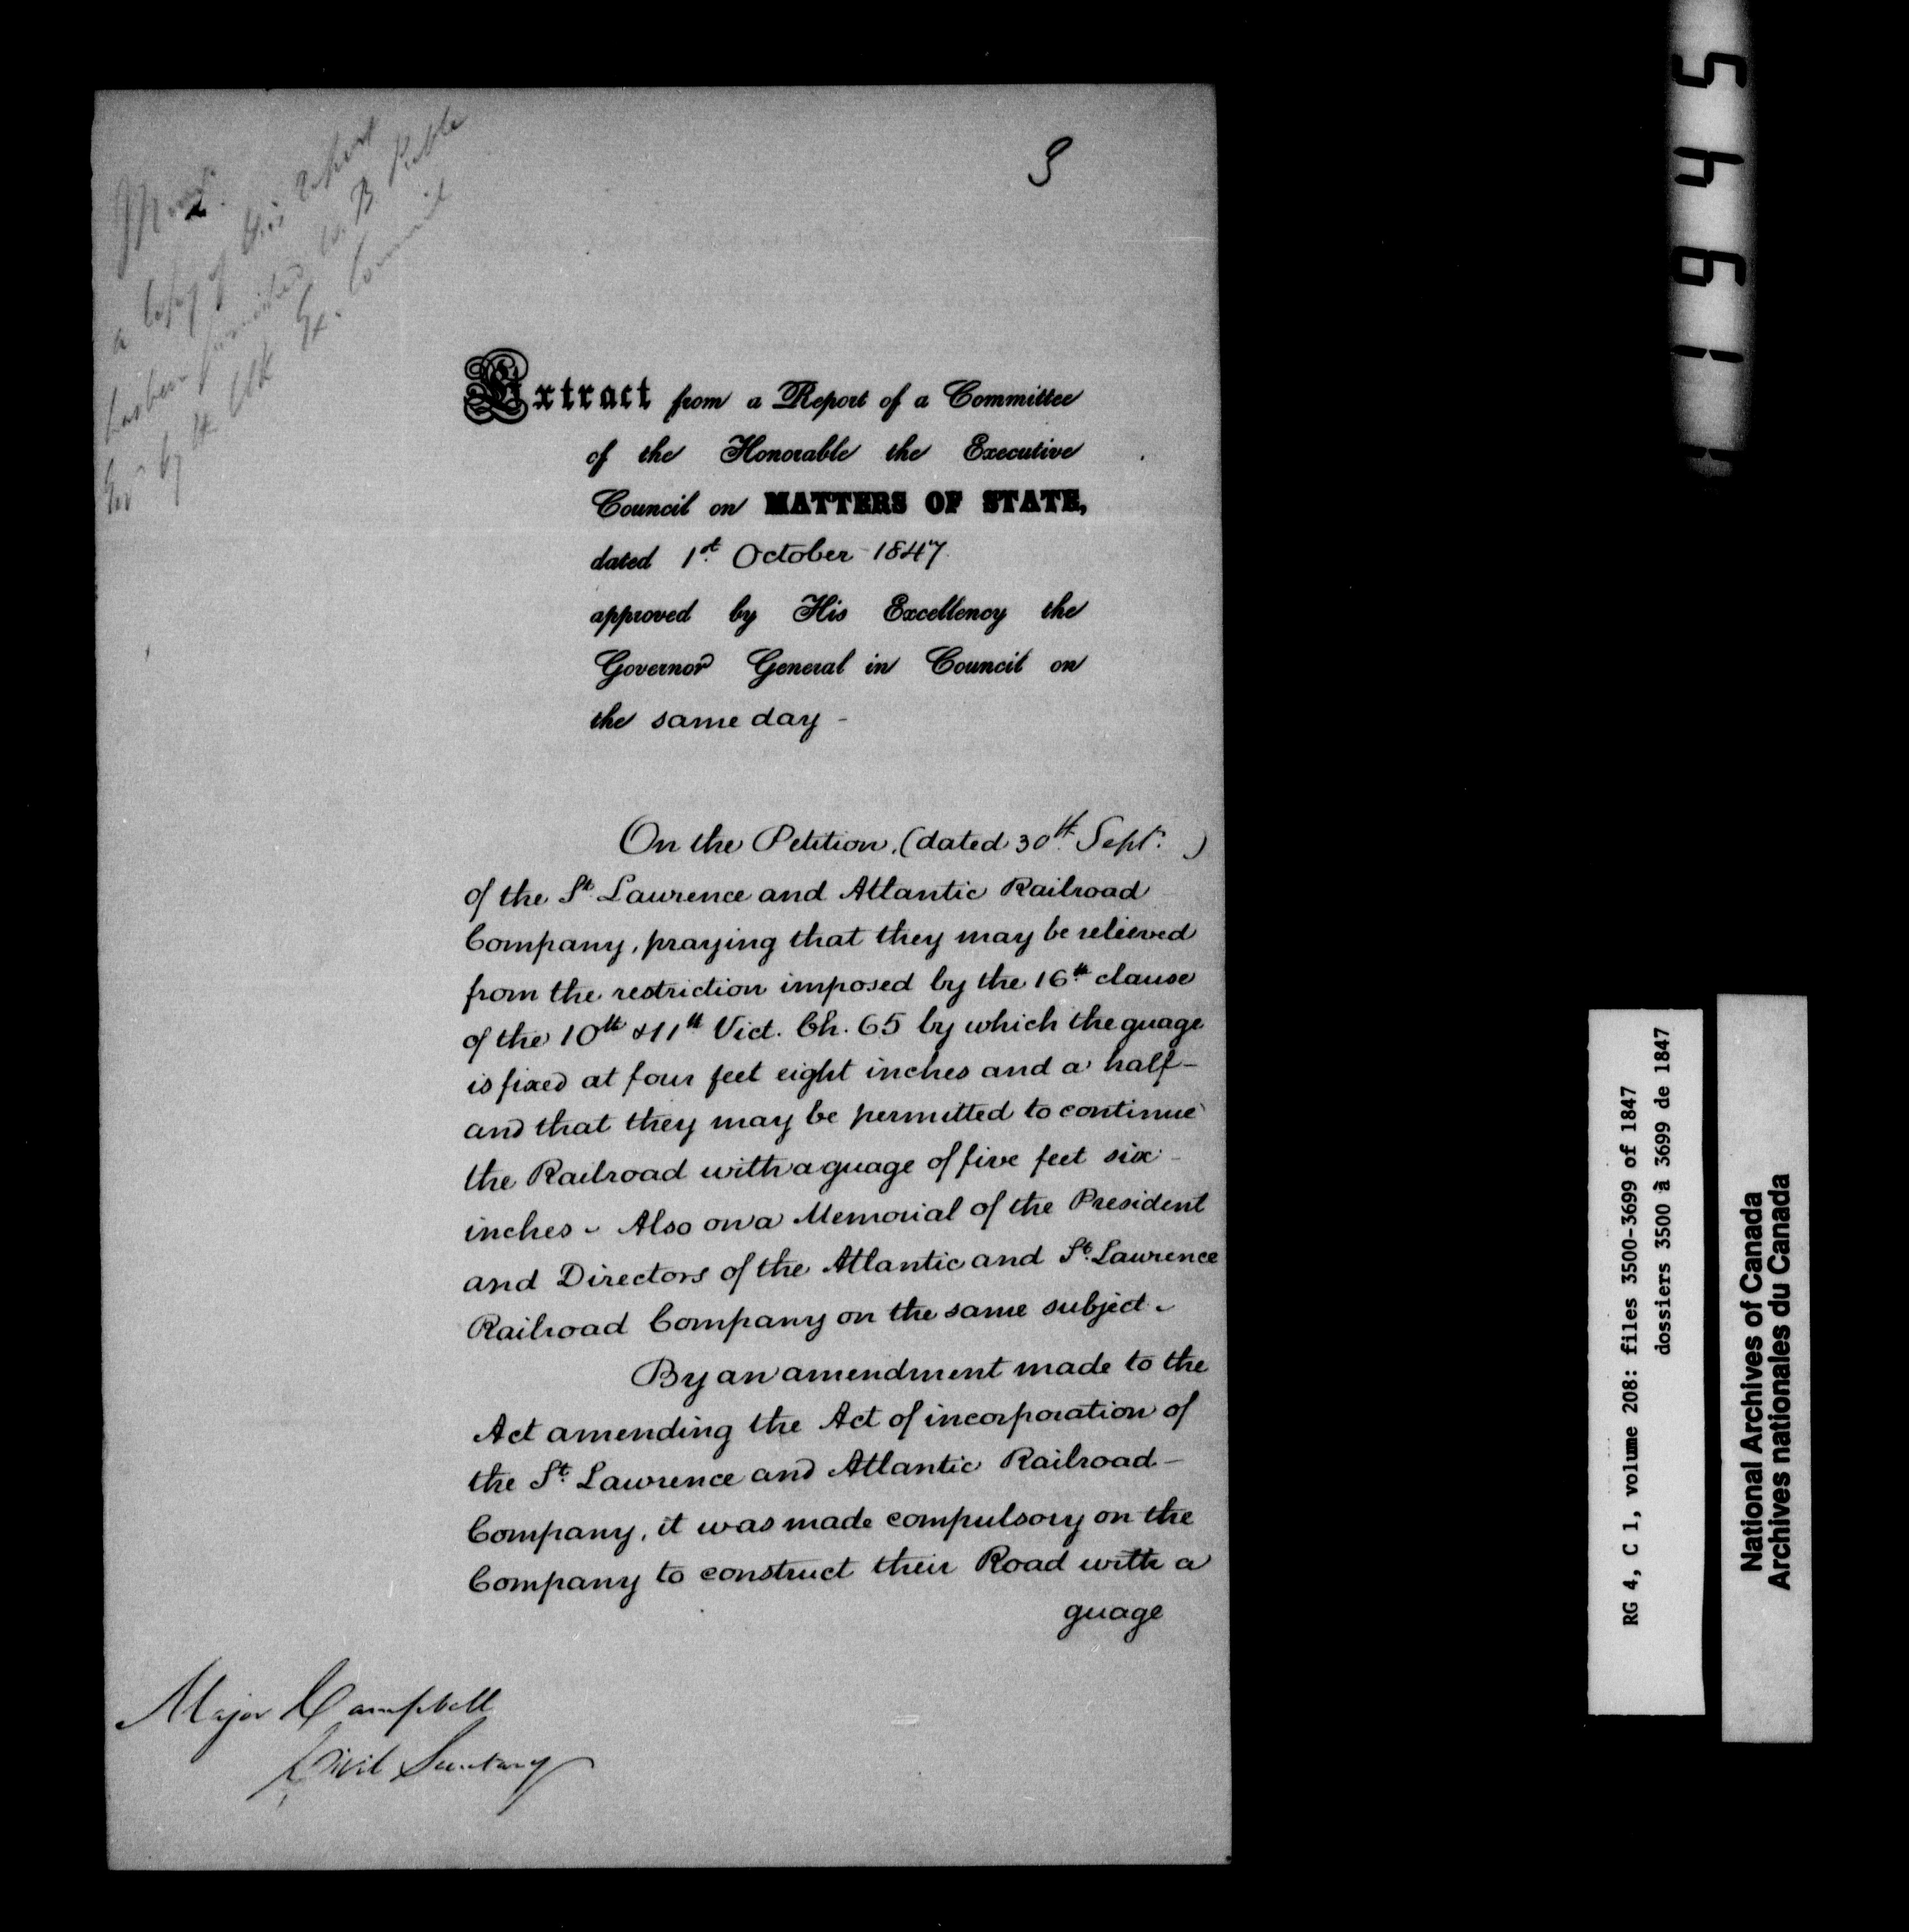 Memo.
a Copy of this Report
has been furnished W. B. Public
by the Clk Ex. Council
3
Extract from a Report of a Committee
of the Honorable the Executive
Council on MATTERS OF STATE,
dated 1st October 1847
approved by His Excellency the
Governor General in Council on
the same day -
On the Petition, (dated 30th Sept. )
of the St. Lawrence and Atlantic Railroad
Company, praying that they may be relieved
from the restriction imposed by the 16th clause
of the 10th & 11th Vict. Ch. 65 by which the guage
is fixed at four feet eight inches and a half -
and that they may be permitted to continue
the Railroad with a guage of five feet six -
inches - Also on a Memorial of the President
and Directors of the Atlantic and St. Lawrence
Railroad Company on the same subject -
By an amendment made to the
Act amending the Act of incorporation of
the St. Lawrence and Atlantic Railroad -
Company, it was made compulsory on the
Company to construct their Road with a
guage
Major Campbell
Civil Secretary
RG 4, C 1, volume 208: files 3500-3699 of 1847
dossiers 3500 à 3699 de 1847
National Archives of Canada
Archives nationales du Canada